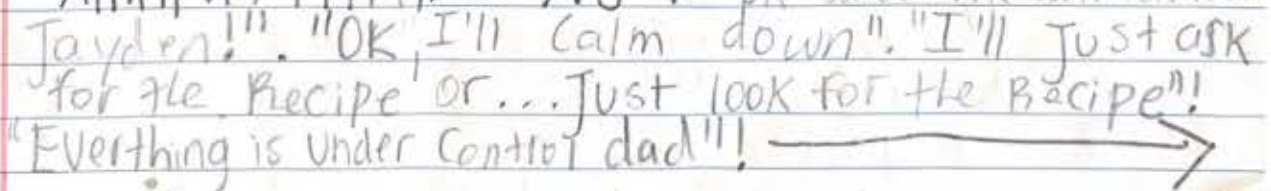 Jayden!". "OK, I'll Calm down". "I'll Just ask
for the Recipe or... Just look for the Recipe"!
"Everthing is Under Control dad"!